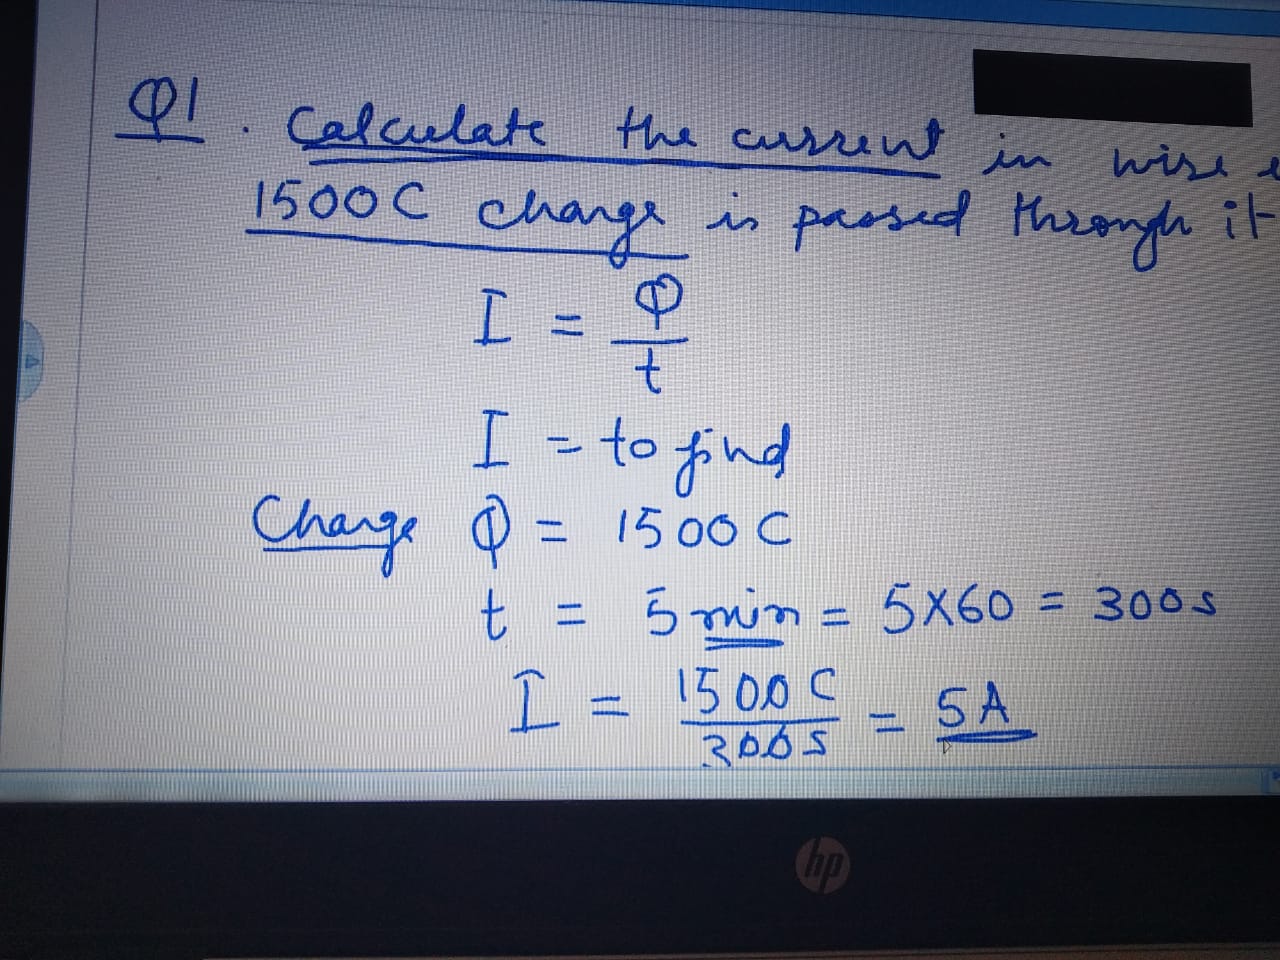 Q1. Calculate the current in wire
1500C charge is passed through it
I = Q/t
I = to find
Charge Q = 1500C
t = 5 min = 5X60 = 300s
I = 1500C/300s = 5A
hp